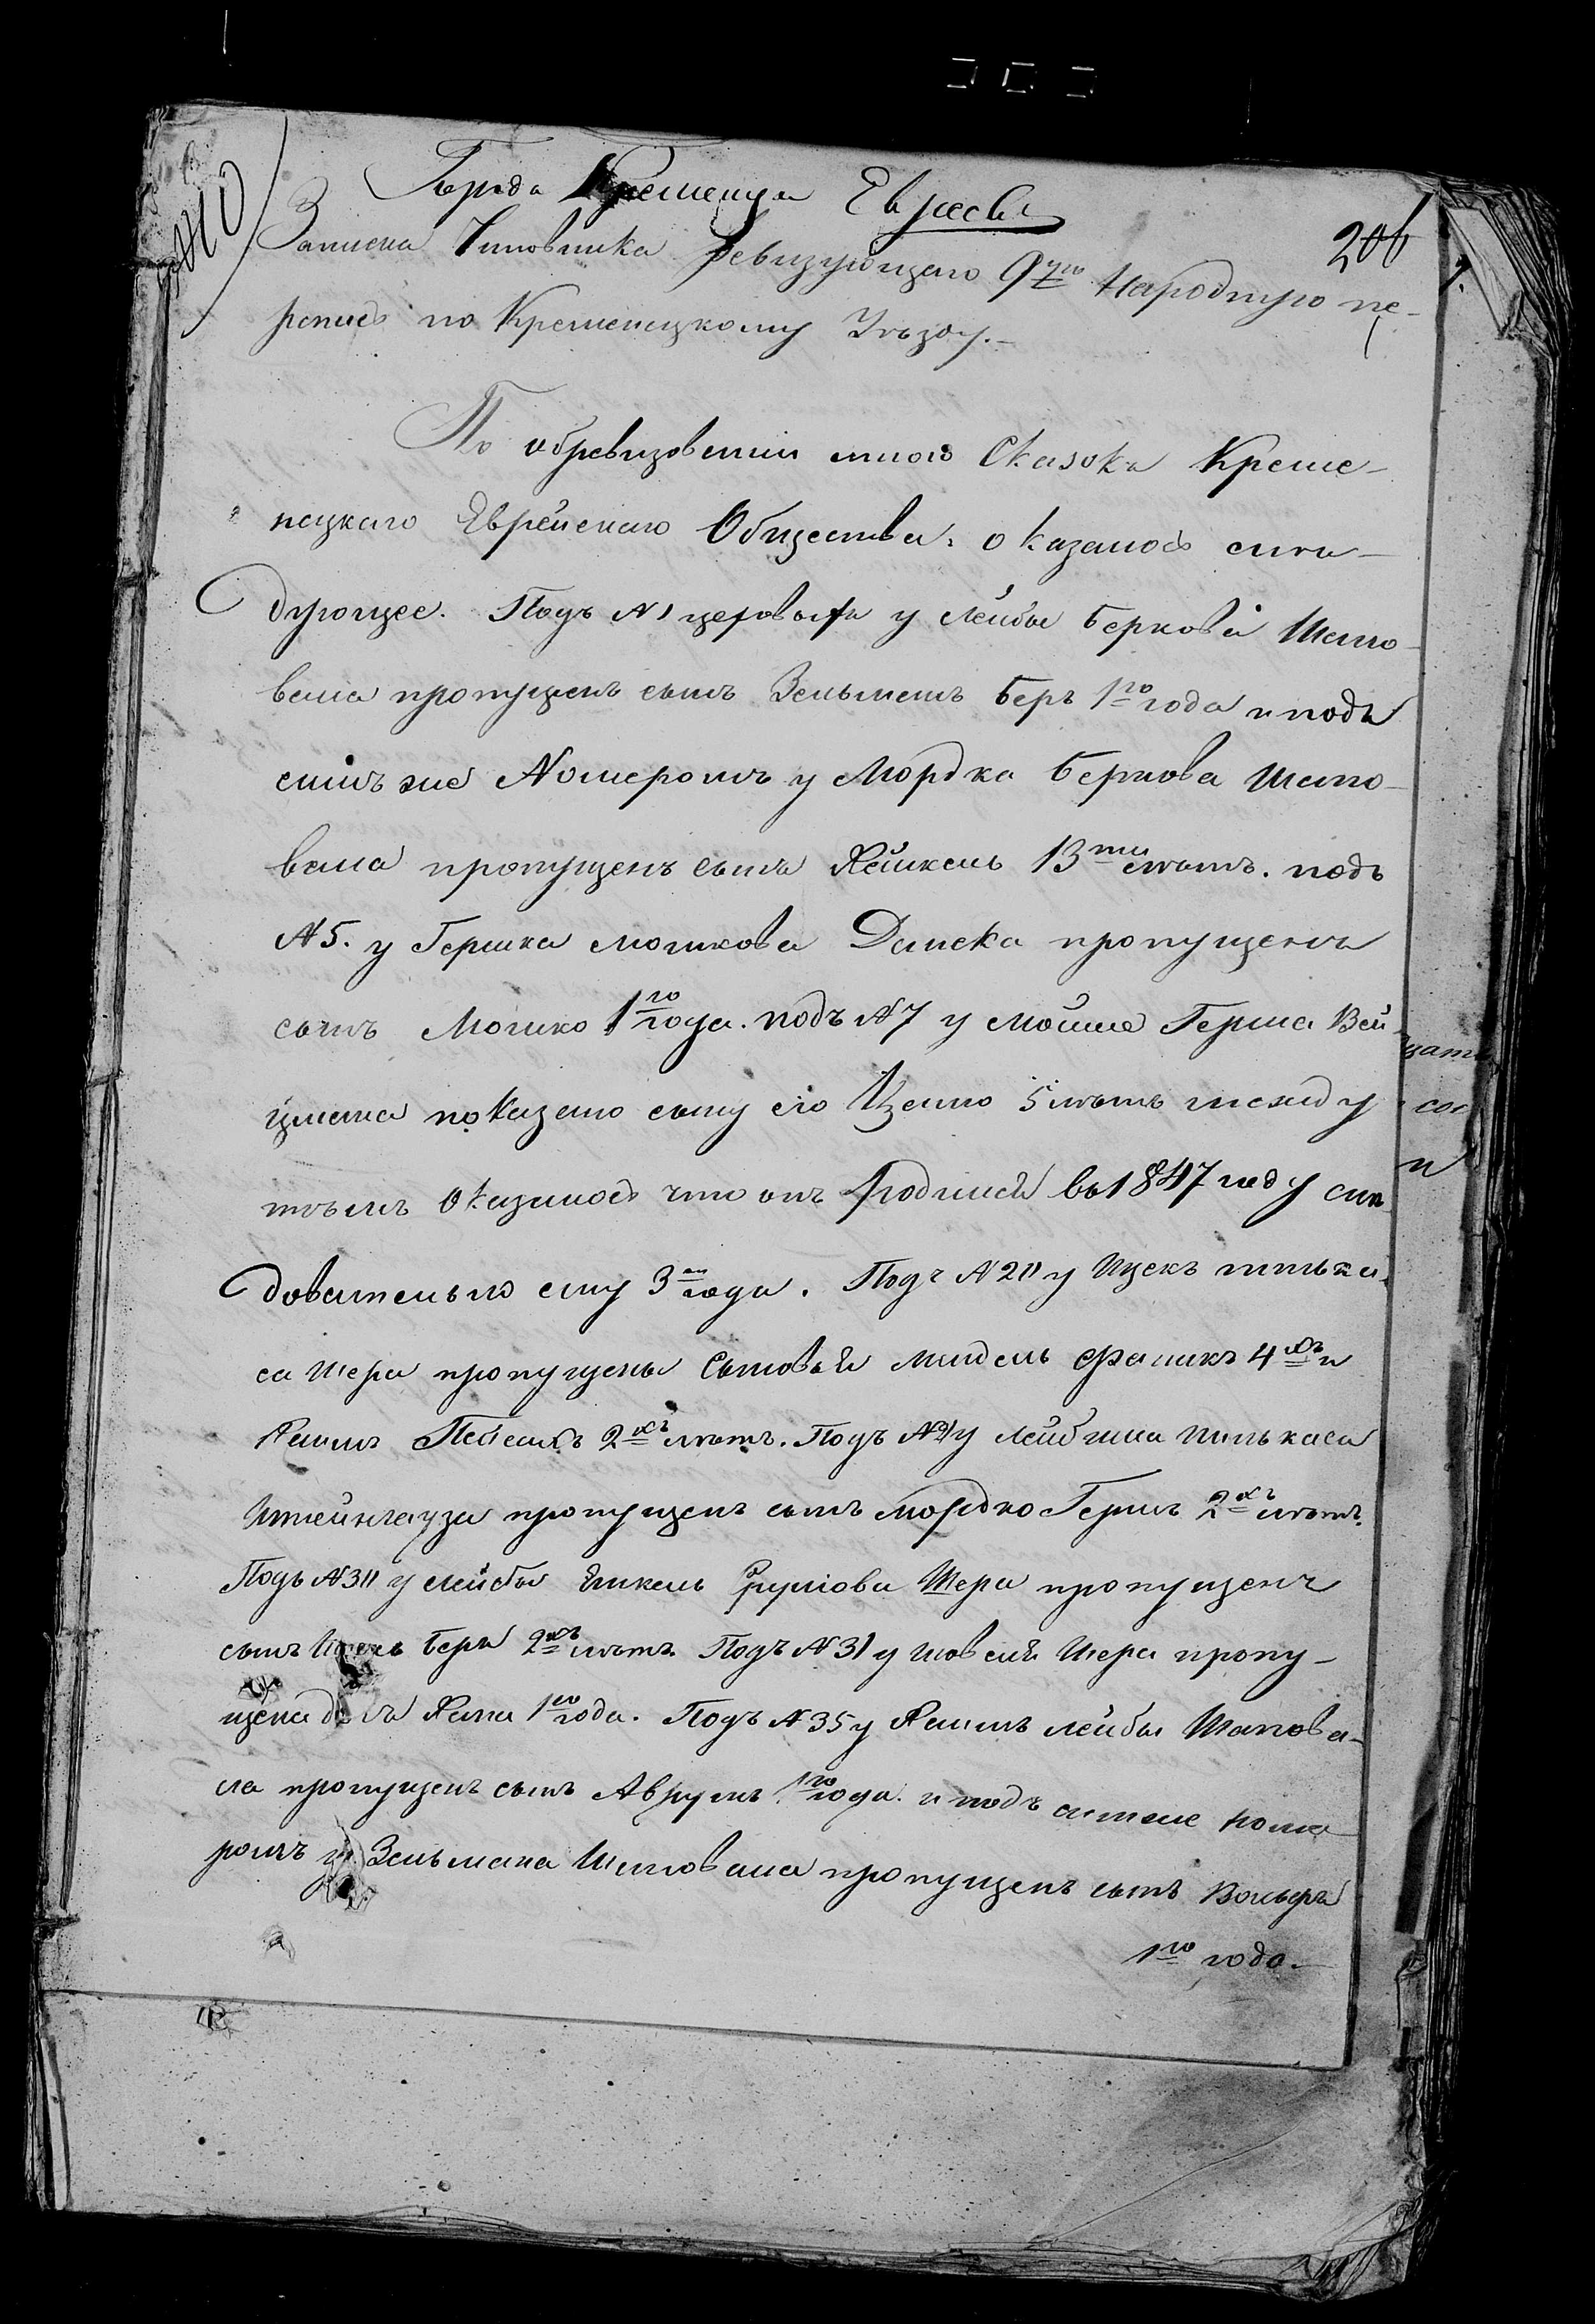 Города Кременца Евреевъ
206
Записка Чиновника ревизующаго 9ую Народную пе-
репись по Кременецкому Уѣзду.-
По обревизованіи мною Сказокъ Креме-
нецкаго Еврейскаго Общества, оказалось слѣ-
дующее. Подъ №1 у Лейбы Беркова Шапо-
вала пропущенъ сынъ Зельманъ Беръ 1го года и подъ
симъ же Номеромъ у Мордка Беркова Шапо-
вала пропущенъ сынъ Янкель 13ти лѣтъ. подъ
№5. у Гершка Мошкова пропущенъ
сынъ Мошко 1го года. подъ №7 у Мойше Герша Вей-
цмана показано сыну его 5 лѣтъ между
тѣмъ оказалось что онъ родился въ 1847 году слѣ-
довательно ему 3 года. Подъ №20 у Ицекъ Пинька-
са Шера пропущены Сыновья Мендель 4хъ и
Хаимъ Пейсахъ 2хъ лѣтъ. Подъ № у Лейбиша Пинькаса
Штейнгауза пропущенъ сынъ Мордко Гершъ 2хъ лѣтъ.
Подъ №30 у Лейбы Янкель Шера пропущенъ
сынъ Беръ 2хъ лѣтъ. Подъ №31 у Шера пропу-
щена дочь Хана 1го года. Подъ №35 у Хаимъ Лейбы Шапова-
ла пропущенъ сынъ Аврумъ 1го года. и подъ симъже номе-
ромъ у Зельмана Шаповала пропущенъ сынъ Вольфъ
1го года.-